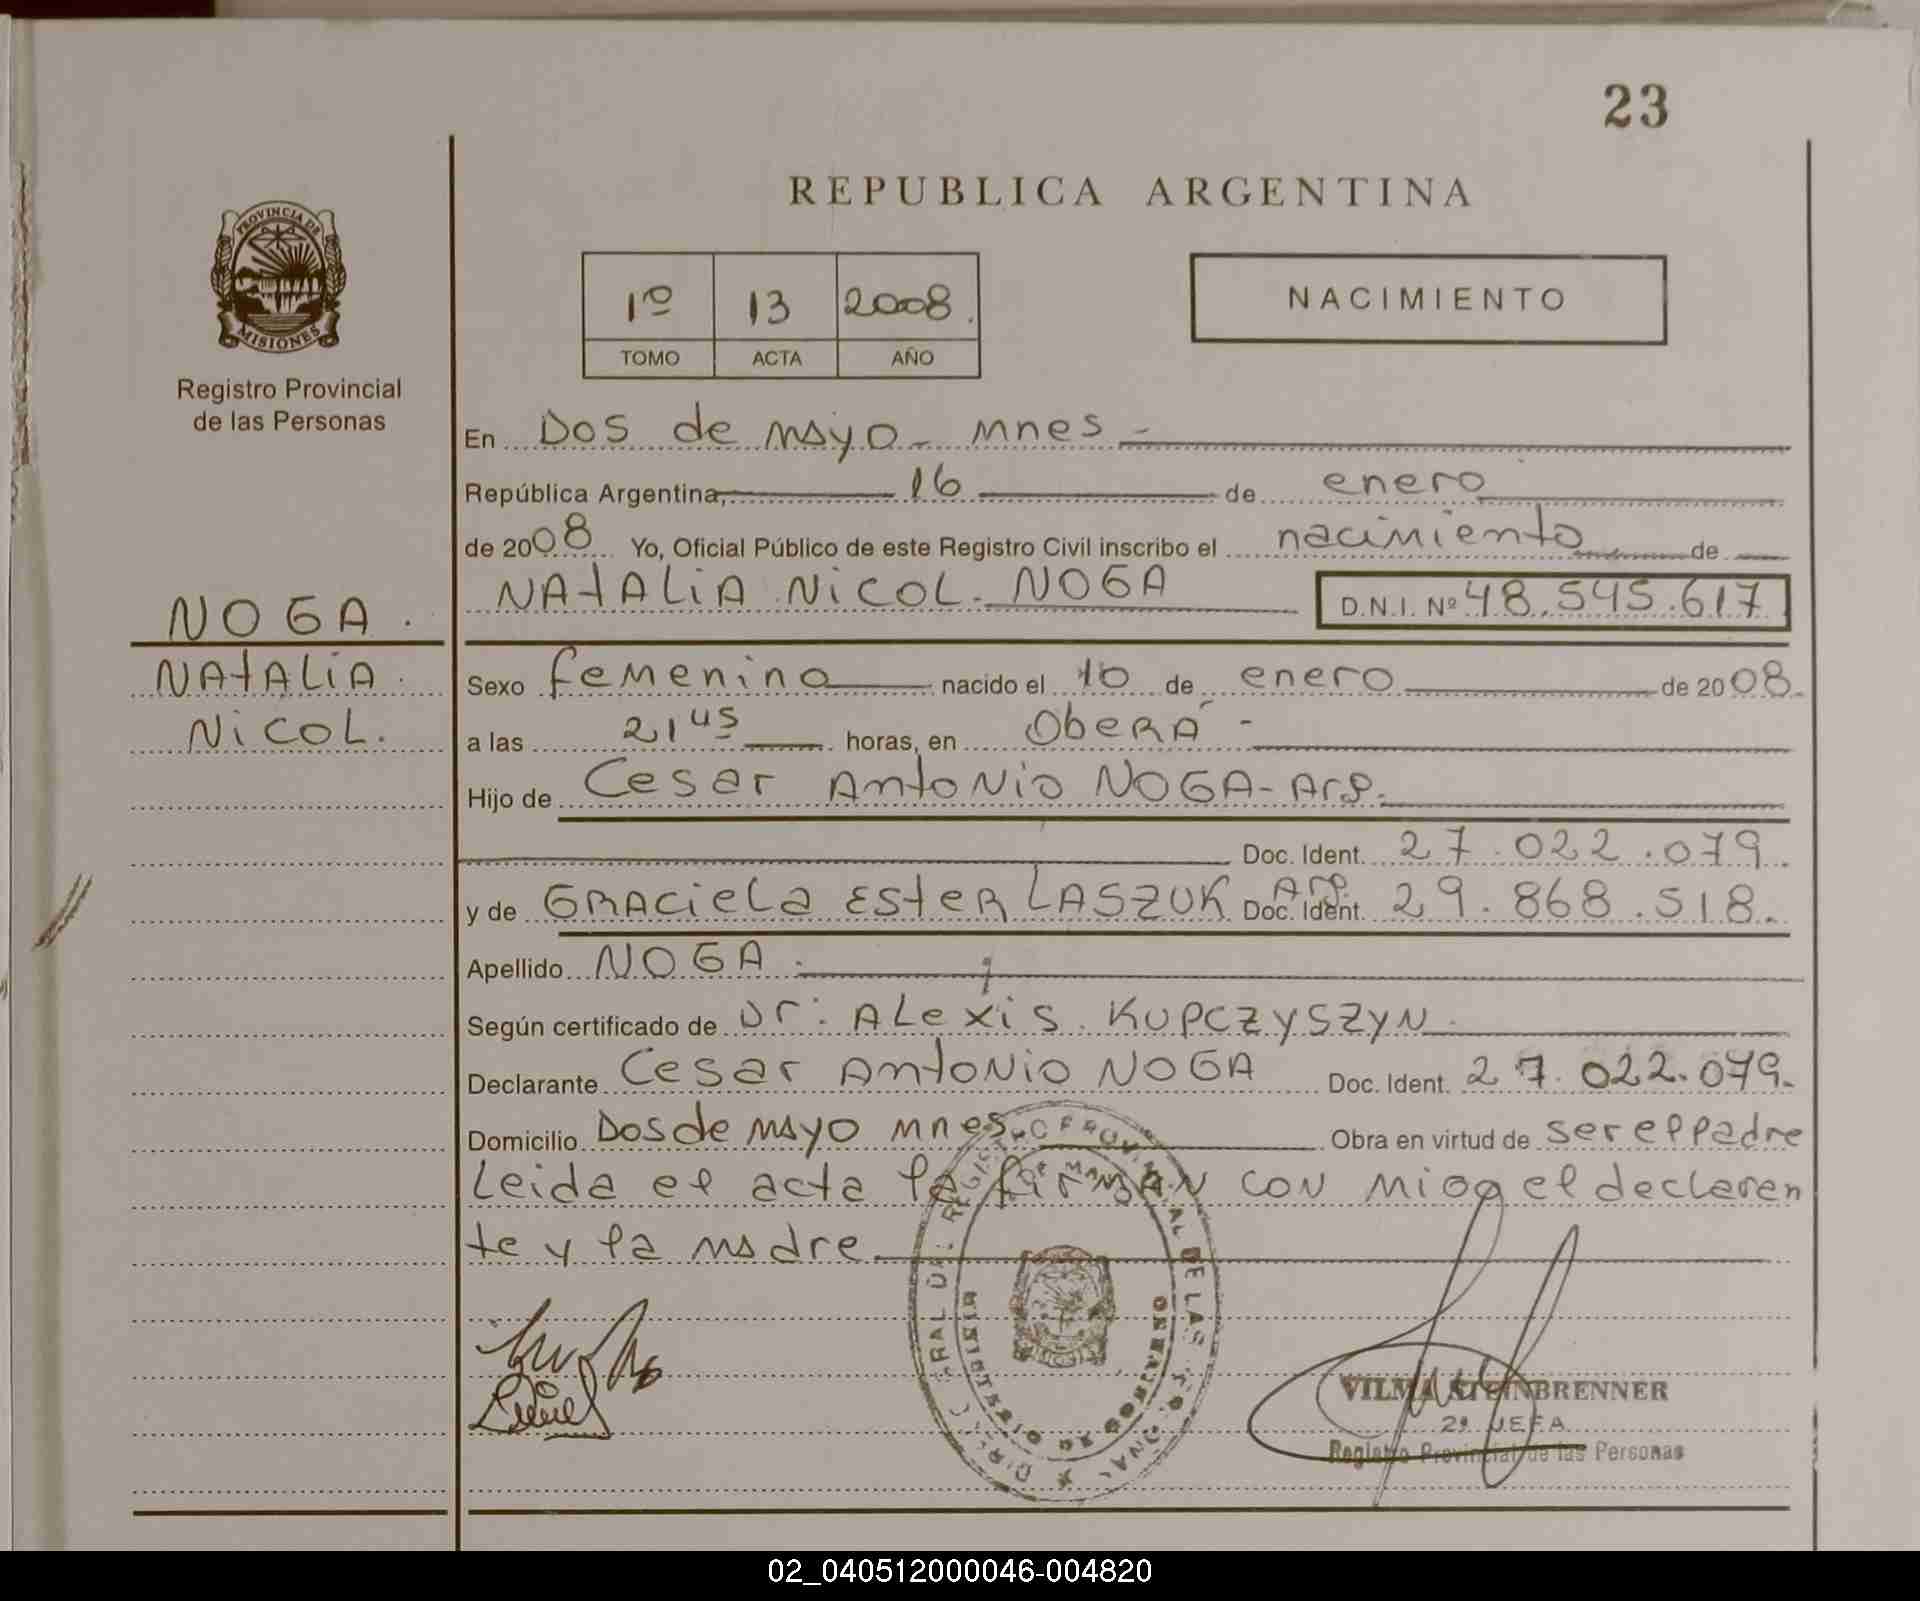 23
REPUBLICA ARGENTINA
PROVINCIA DE
MISIONES
Registro Provincial
de las Personas
1º 13 2008.
TOMO ACTA AÑO
NACIMIENTO
En Dos de mayo - mnes -
República Argentina, 16 de enero
de 2008 Yo, Oficial Público de este Registro Civil inscribo el nacimiento de
NOGA.
NATALIA NICOL. NOGA D.N.I. Nº 48.545.617
NATALIA.
Sexo femenino nacido el 10 de enero de 2008.
NICOL.
a las 21 45 horas, en Oberá -
Hijo de Cesar Antonio NOGA - Arg.
Doc. Ident. 27.022.079.
y de GRACIELA ESTER LASZUK Arg. Doc. Ident. 29.868.518.
Apellido NOGA.
Según certificado de Dr: ALEXIS KUPCZYSZYN.
Declarante Cesar Antonio NOGA Doc. Ident. 27.022.079.
Domicilio Dos de mayo mnes Obra en virtud de ser el padre
Leida el acta la firman con migo el declaran
te y la madre.
MINISTERIO DE GOBIERNO
VILMA STEINBRENNER
2ª JEFA
Registro Provincial de las Personas
02_040512000046-004820